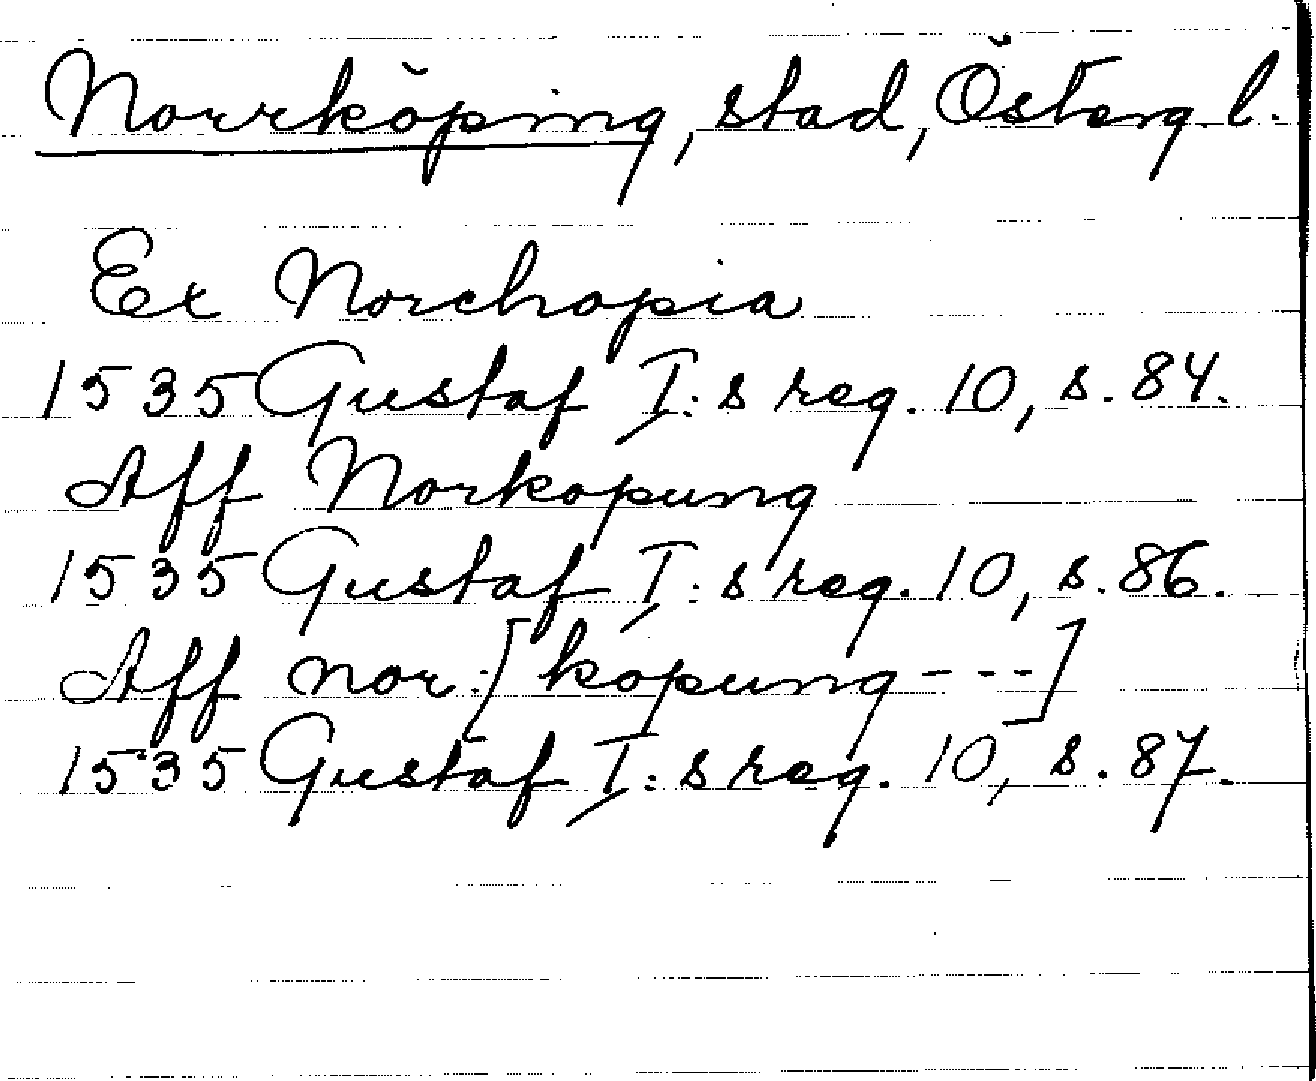 Norrköping, stad, Österg. l.
Ex Norchopia
1535 Gustaf I:s reg. 10, s. 84.
Aff Norkopung
1535 Gustaf I:s reg. 10, s. 86.
Aff nor:[kopung---]
1535 Gustaf I:s reg. 10, s. 87.